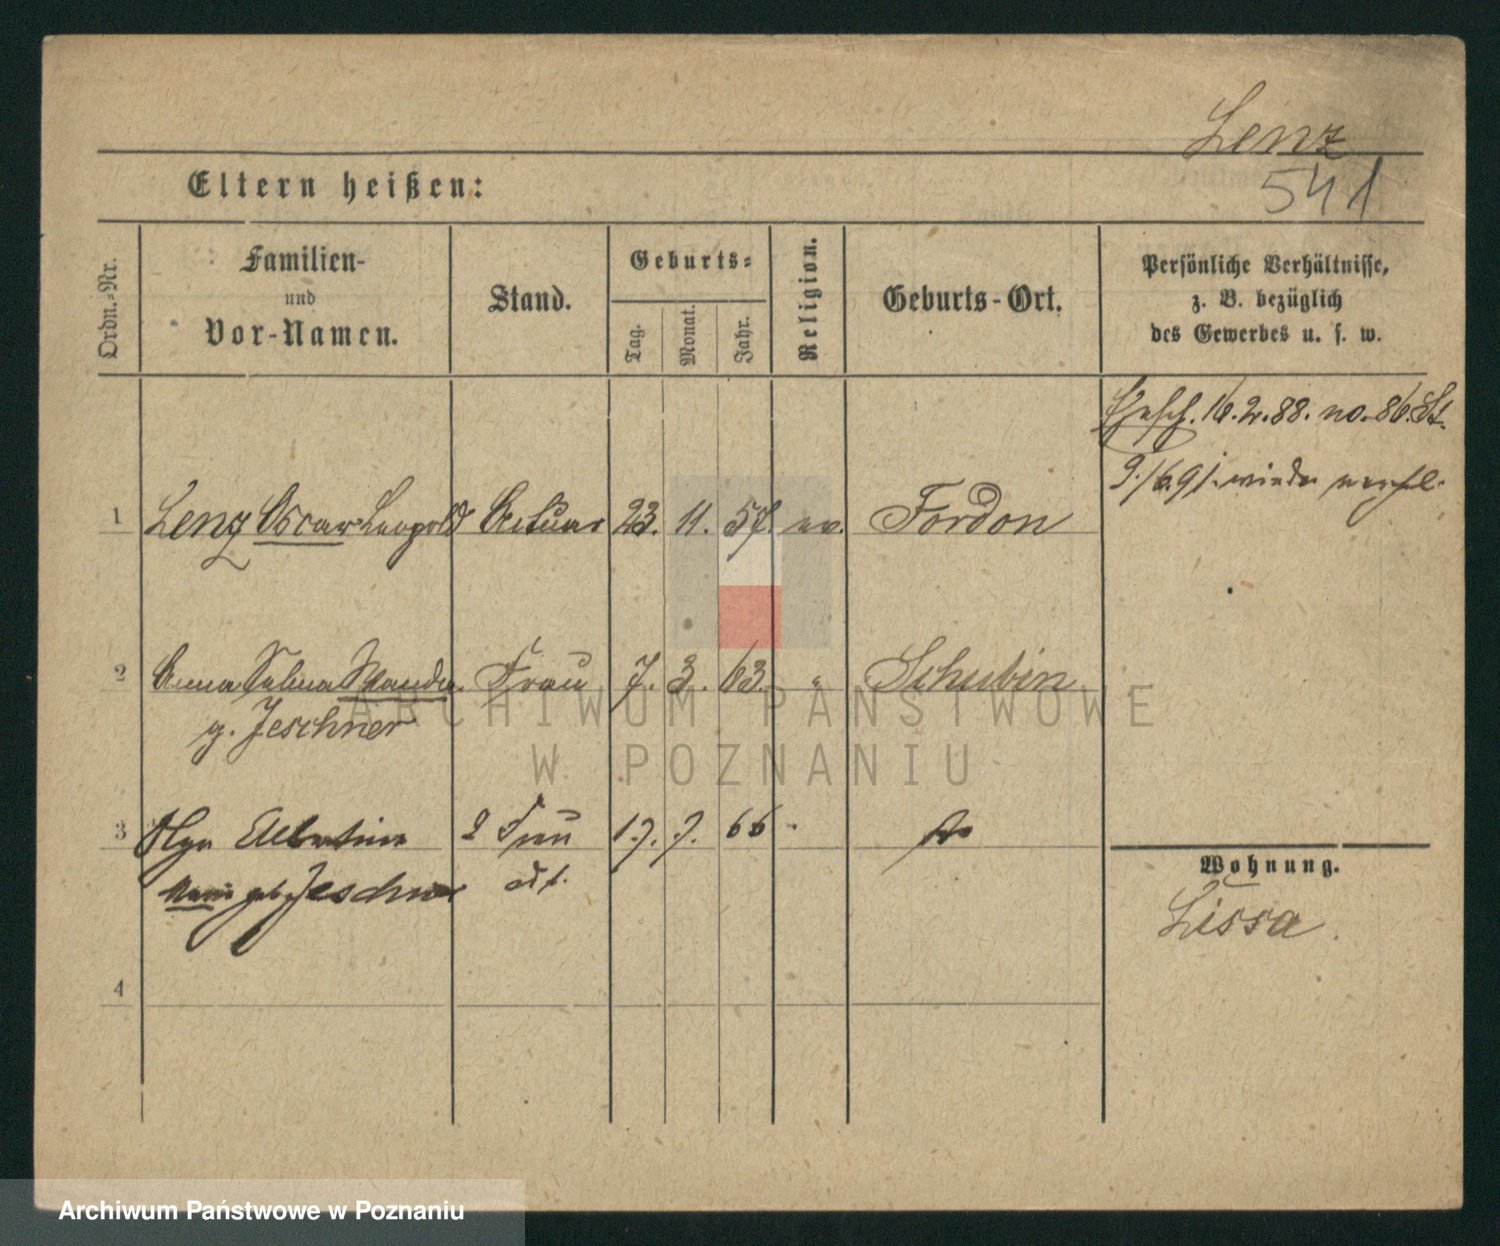 Lenz
541
Eltern heißen:
Ordn.-Nr.
Familien-
und
Vor-Namen.
Stand.
Geburts-
Tag.
Monat.
Jahr.
Religion.
Geburts-Ort.
Persönliche Verhältnisse,
z. B. bezüglich
des Gewerbes u. s. w.
Ehesch. 16.2.88. no. 86. St.
9./6.91. wieder verehl.
1 Lenz Oscar Leopold Actuar 23. 11. 57. ev. Fordon
2 Anna Selma Wanda Frau 7. 3. 63. " Schubin
g. Jeschner
3 Olga Albertine 2 Frau 17. 7. 66
geb. Jeschner
4
Wohnung.
Lissa.
ARCHIWUM PAŃSTWOWE
W POZNANIU
Archiwum Państwowe w Poznaniu